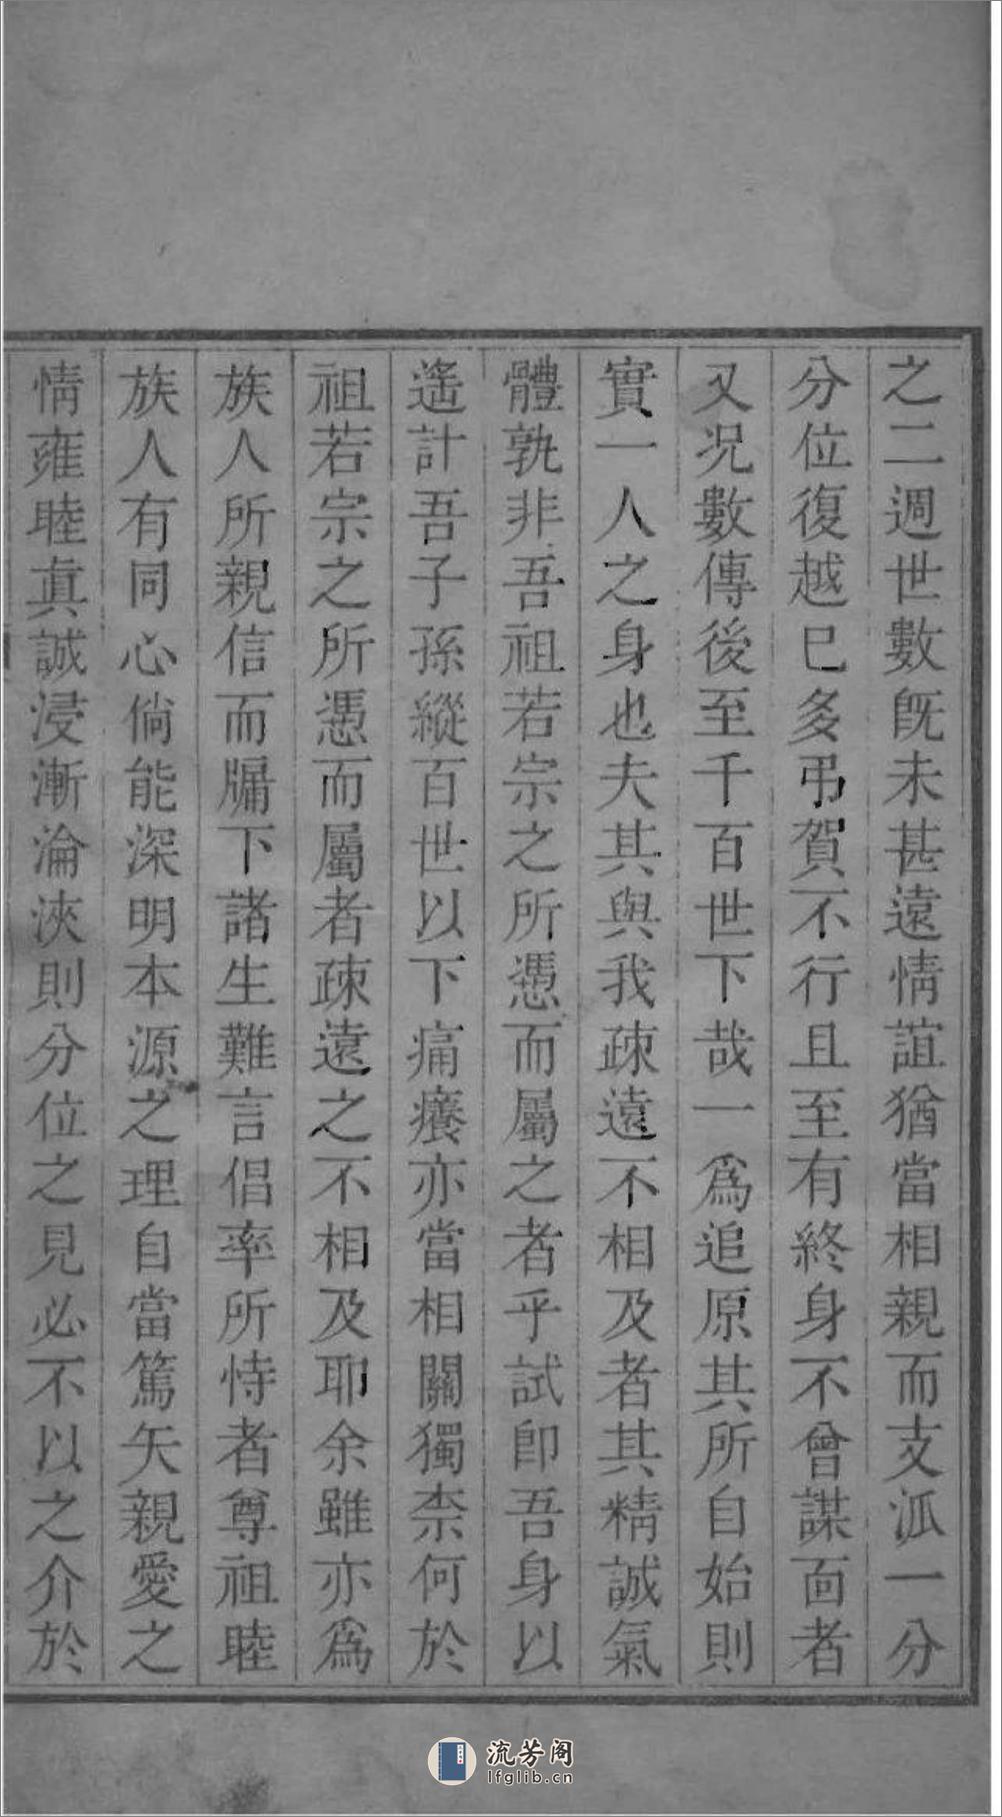 之二週世數旣未甚遠情誼猶當相親而支派一分
分位復越巳多弔賀不行且至有終身不曾謀面者
又況數傳後至千百世下哉一爲追原其所自始則
實一人之身也夫其與我疎遠不相及者其精誠氣
體孰非吾祖若宗之所憑而屬之者乎試卽吾身以
遙計吾子孫縱百世以下痛癢亦當相關獨柰何於
祖若宗之所憑而屬者疎遠之不相及耶余雖亦爲
族人所親信而牖下諸生難言倡率所恃者尊祖睦
族人有同心倘能深明本源之理自當篤矢親愛之
情雍睦眞誠浸漸淪浹則分位之見必不以之介於
流芳阁
lfglib.cn